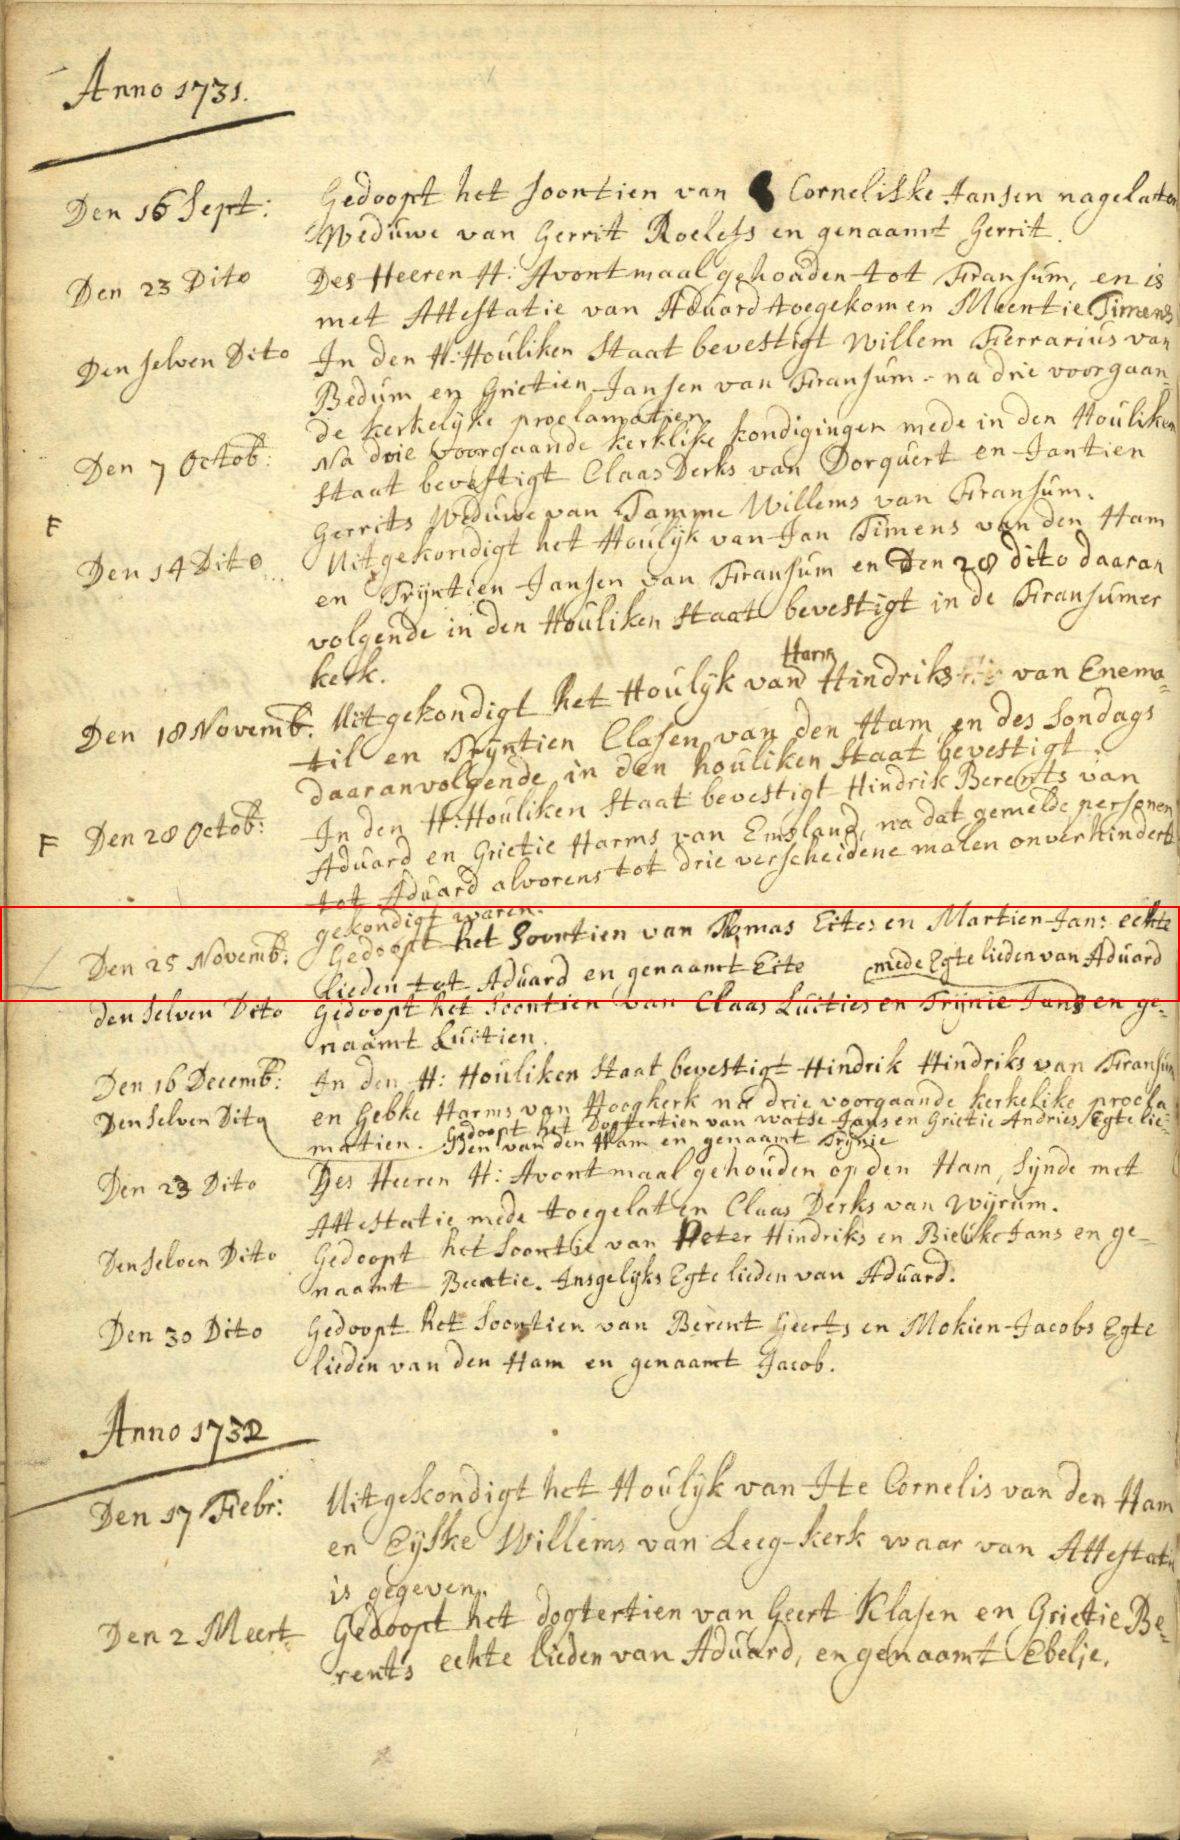 Anno 1731.
Den 16 Sept: Gedoopt het soontien van Corneliske Jansen nagelaten
Weduwe van Gerrit Roelefs en genaamt Gerrit.
Den 23 Dito Des Heeren H: Avontmaal gehouden tot Fransum, en is
met Attestatie van Aduard toegekomen Meentie Timens
Den selven Dito In den H: Houliken Staat bevestigt Willem Ferrarius van
Bedum en Grietien Jansen van Fransum - na drie voorgaan=
de kerkelyke proclamatien.
Den 7 Octob: Na drie voorgaande kerklike kondigingen mede in den Houliken
staat bevestigt Claas Derks van Dorquert en Jantien
Gerrits Weduwe van Tamme Willems van Fransum.
F
Den 14 Dito Uitgekondigt het Houlijk van Jan Timens van den Ham
en Trijntien Jansen van Fransum en Den 28 dito daaran
volgende in den Houliken staat bevestigt in de Fransumer
kerk.
Harm
Den 18 Novemb: Uitgekondigt het Houlijk van Hindriks van Enema=
til en Trijntien Clasen van den Ham en des Sondags
daaranvolgende in den houliken staat bevestigt.
F Den 28 Octob: In den H: Houliken Staat bevestigt Hindrik Berents van
Aduard en Grietie Harms van Emsland, na dat gemelde personen
tot Aduard alvorens tot drie verscheidene malen onverhindert
gekondigt waren.
Den 25 Novemb: Gedoopt het Soontien van Thomas Eites en Martien Jans echte
lieden tot Aduard en genaamt Eite mede Egte lieden van Aduard
den selven Dito Gedoopt het Soontien van Claas Luities en Trijnie Jans en ge=
naamt Luitien.
Den 16 Decemb: In den H: Houliken Staat bevestigt Hindrik Hindriks van Fransum
en Gebke Harms van Hoogkerk na drie voorgaande kerkelike procla
Den Selven Dito Gedoopt het Dogtertien van Watse Jans en Grietie Andries Egte lie=
matien. den van den Ham en genaamt Trijnie
Den 23 Dito Des Heeren H: Avontmaal gehouden op den Ham, sijnde met
Attestatie mede toegelaten Claas Derks van Wijrum.
Den selven Dito Gedoopt het Soontie van Peter Hindriks en Bieuke Jans en ge=
naamt Beentie. Insgelijks Egte lieden van Aduard.
Den 30 Dito Gedoopt het Soontien van Berent Geerts en Mokien Jacobs Egte
lieden van den Ham en genaamt Jacob.
Anno 1732
Den 17 Febr: Uitgekondigt het Houlijk van Ite Cornelis van den Ham
en Eijske Willems van Leeg-kerk waar van Attestatie
is gegeven.
Den 2 Meert Gedoopt het dogtertien van Geert Klasen en Grietie Be=
rents echte lieden van Aduard, en genaamt Ebelje.